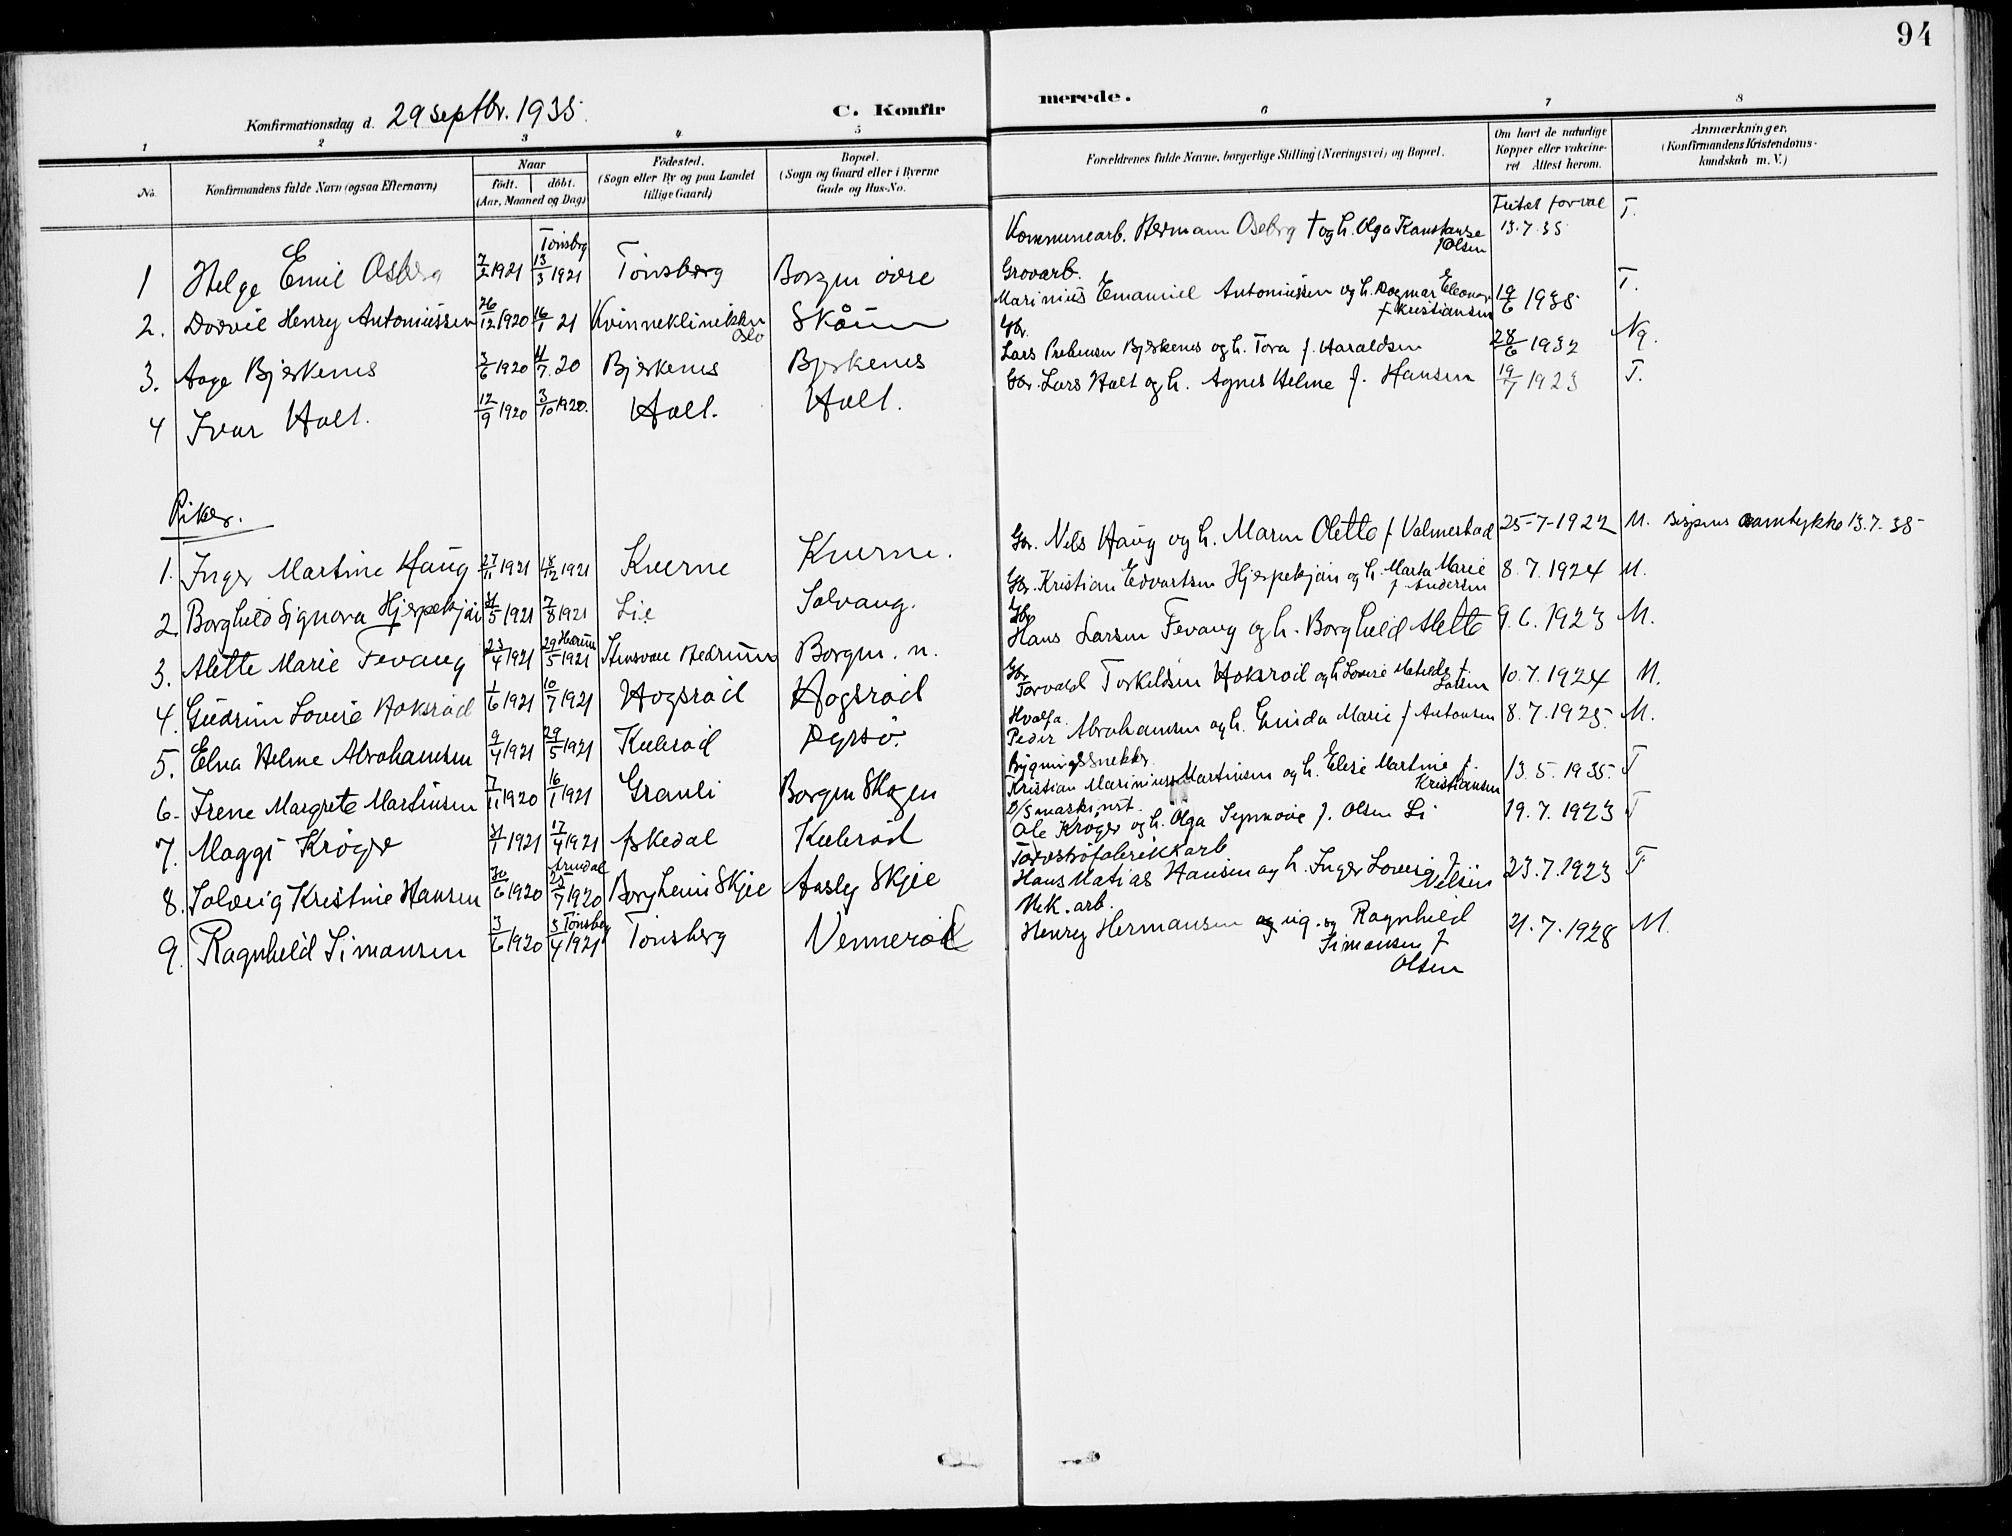 94
Konfirmationsdag d. 29 septbr. 1935.
C. Konfirmerede.
1 2 3 4 5 6 7 8
No.
Konfirmandens fulde Navn (ogsaa Efternavn)
Naar
født. døbt.
(Aar, Maaned og Dag)
Fødested.
(Sogn eller By og paa Landet
tillige Gaard)
Bopæl.
(Sogn og Gaard eller i Byerne
Gade og Hus-No.
Forældrenes fulde Navne, borgerlige Stilling (Næringsvei) og Bopæl.
Om havt de naturlige
Kopper eller vakcine-
ret Attest herom.
Anmærkninger.
(Konfirmandens Kristendoms-
kundskab m. V.)
1 Helge Emil Oseberg 7/2 1921 Tønsbrg 13/3 1921 Tønsberg Borgen øvre Kommunearb. Herman Oseberg † og h. Olga Konstanse f Olsen Fritat for vac 13.7.35 T.
2. Dorvil Henry Antoniussen 26/12 1920 16/1 21 Kvinneklinikken Oslo Skåum Grovarb. Marinius Emanuel Antoniussen og h. Dagmar Eleonor f Kristiansen 19/6 1935 T.
3. Aage Bjerkenes 3/6 1920 4/7. 20 Bjerkenes Bjerkenes Gbr. Lars Prebensen Bjerkenes og h. Tora f. Haraldsen 28/6 1932 Ng.
4 Ivar Holt. 12/9 1920 3/10 1920. Holt. Holt. Gbr. Lars Holt og h. Agnes Helme f. Hansen 19/7 1923 T.
Piker.
1. Inger Martine Haug 27/11 1921 18/12 1921 Kverne Kverne. Gbr. Nils Haug og h. Maren Olette f Valmestad 25-7-1922 M. Bispens samtykke 13.7.35
2. Borghild Signora Hjerpekjøn 31/5 1921 7/8 1921 Lie Solvang. Gbr. Kristian Edvartsen Hjerpekjøn og h. Marta Marie f Andersen 8.7.1924 M.
3. Alette Marie Fevang 23/4 1921 29/5 1921 Hedrum Borgen. n. Gbr Hans Larsen Fevang og h. Borghild Alette 9.6.1923 M.
4. Gudrun Lovise Hoksrød 1/6 1921 10/7 1921 Hogsrød Hogsrød Gbr Torvald Torkildsen Hoksrød og h Lovise Matilde f. Larsen 10.7.1924 M.
5. Elna Helme Abrahamsen 9/4 1921 29/5 1921 Kulerød Dyrsø. Hvalfa. Peder Abrahamsen og h. Gunda Marie f Antonsen 8.7.1925. M.
6. Irene Margrete Martinsen 7/11 1920 16/1 1921 Granli Borgen Skogen Bygningssnekker Kristian Marinius Martinsen og h. Elise Martine f. Kristiansen 13.5.1935. T
7. Maggi Krøger 31/1 1921 17/4 1921 Askedal Kulerød D/S maskinist. Ole Krøger og h. Olga Synnøve f. Olsen Li 19.7.1923 T
8. Solveig Kristine Hansen 30/6 1920 Arendal 25/7 1920 Borgheim Skjee Aasly Skjee Torvstrøfabrikkarb Hans Matias Hansen og h. Inger Lovise f Nilsen 23.7.1923 T
9. Ragnhild Simonsen 3/6 1920 3/4 1921 Tønsberg Tønsberg Vennerød Mek. arb. Henry Hermansen og ug. sy Ragnhild Simonsen f Olsen 21.7.1928 M.